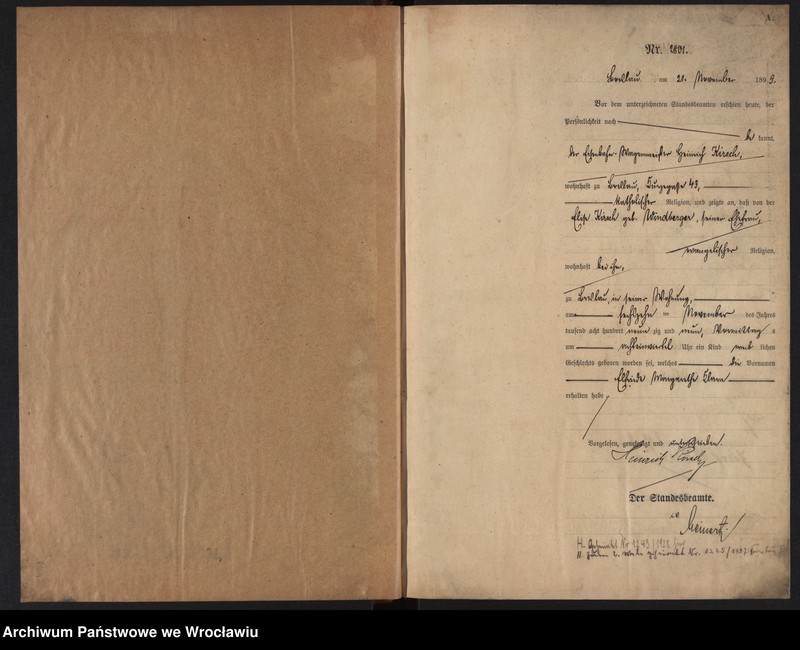 Nr. 2801.
Breslau am 20. November 1899.
Vor dem unterzeichneten Standesbeamten erschien heute, der
Persönlichkeit nach
be kannt,
der Eisenbahn-Wagenmeister Heinrich Kirsch,
wohnhaft zu Breslau, 43,
katholischer Religion, und zeigte an, daß von der
Elise Kirsch geb. Windberger, seiner Ehefrau,
evangelischer Religion,
wohnhaft bei ihm,
zu Breslau, in seiner Wohnung,
am sechszehn ten November des Jahres
tausend acht hundert neun zig und neun, Vormittag s
um achteinviertel Uhr ein Kind weib lichen
Geschlechts geboren worden sei, welches die Vornamen
Elfriede Margarethe Klara
erhalten habe
Vorgelesen, genehmigt und unterschrieben.
Heinrich Kirsch
Der Standesbeamte.
Meinert
Archiwum Państwowe we Wrocławiu